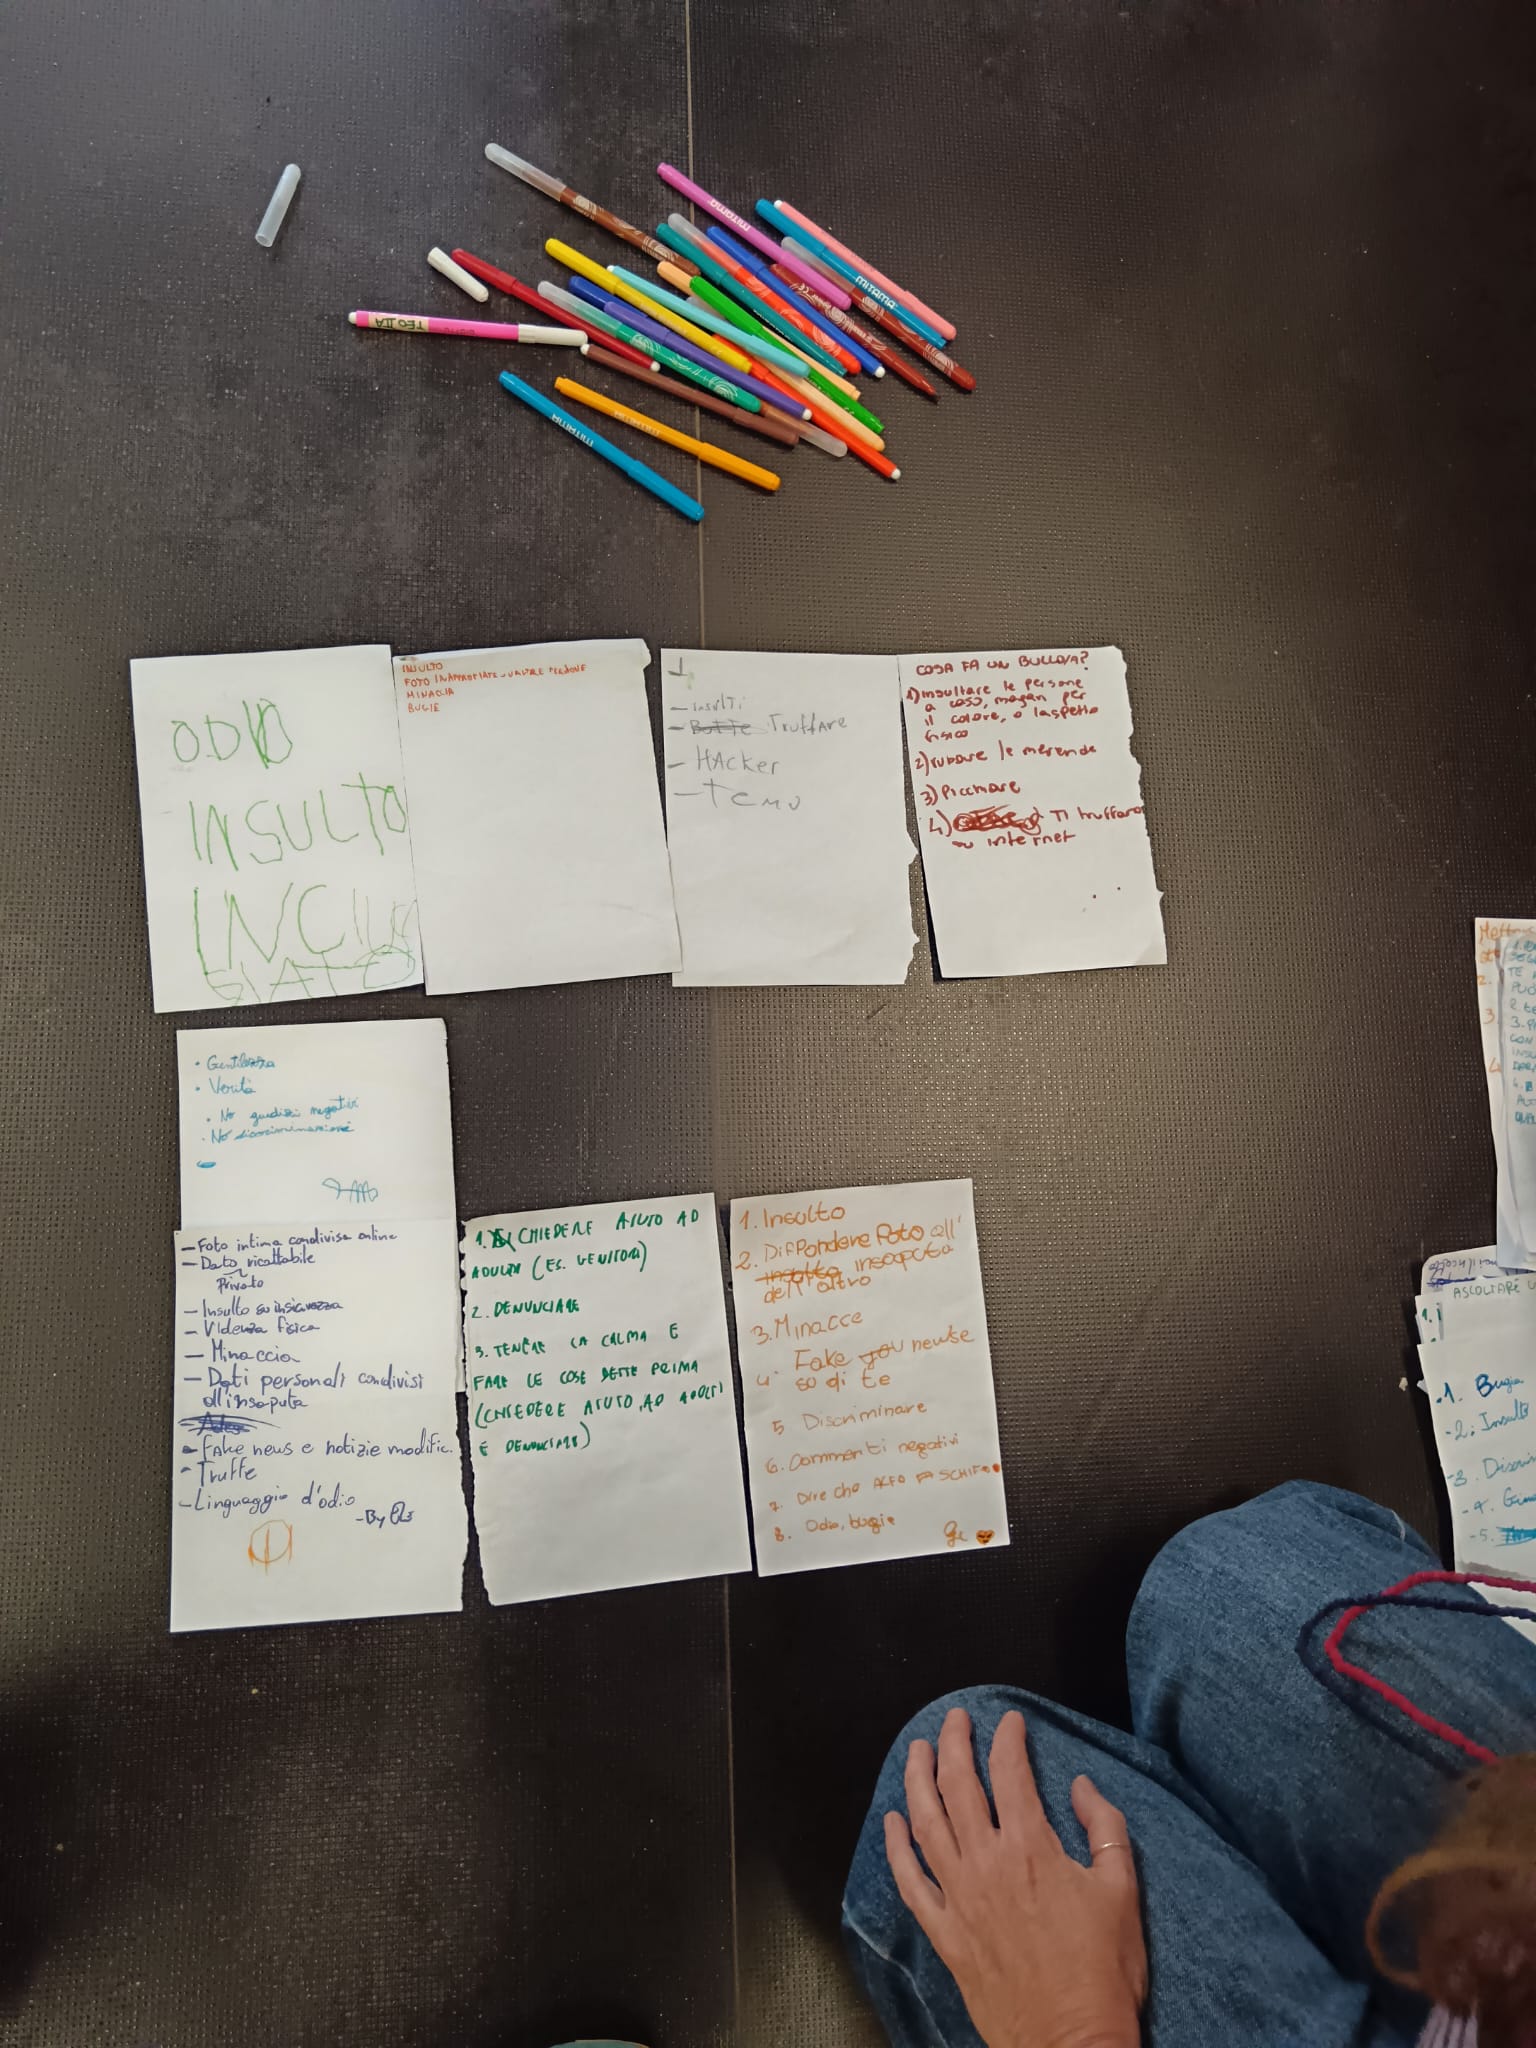 MITAMA
MITAMA
TEO IIA
GIOTTO
MITAMA
MITAMA
ODIO
INSULTO
INCI
INSULTO
FOTO INAPPROPIATE
MINACIA
BUGIE
- INSULTI
- BOTTE TRUFFARE
- HACKER
- TEMU
COSA FA UN BULLO/A?
1) insultare le persone
a caso, magari per
il colore, o laspetto
fisico
2) rubare le merende
3) Picchiare
4) Ti truffano
su internet
• Gentilezza
• Verità
• No giudizi negativi
• No discriminazioni
- Foto intima condivisa online
- Dato ricattabile
Privato
- Insulto su insicurezza
- Violenza fisica
- Minaccia
- Dati personali condivisi
all'insaputa
- Fake news e notizie modific.
- Truffe
- Linguaggio d'odio
- By
1. CHIEDERE AIUTO AD
ADULTI (ES. GENITORI)
2. DENUNCIARE
3. TENERE LA CALMA E
FARE LE COSE DETTE PRIMA
(CHIEDERE AIUTO, AD ADULTI
E DENUNCIARE)
1. Insulto
2. Diffondere foto all'
insolto insaputa
dell'altro
3. Minacce
4. Fake you newse
su di te
5 Discriminare
6. Commenti negativi
7. Dire che FA SCHIFO
8. Odio, bugie
Ge
2.
3.
TE
2.
3.
CON
4.
ASCOLTARE
1. Bugia
-2. Insulto
-3.
-4.
-5.